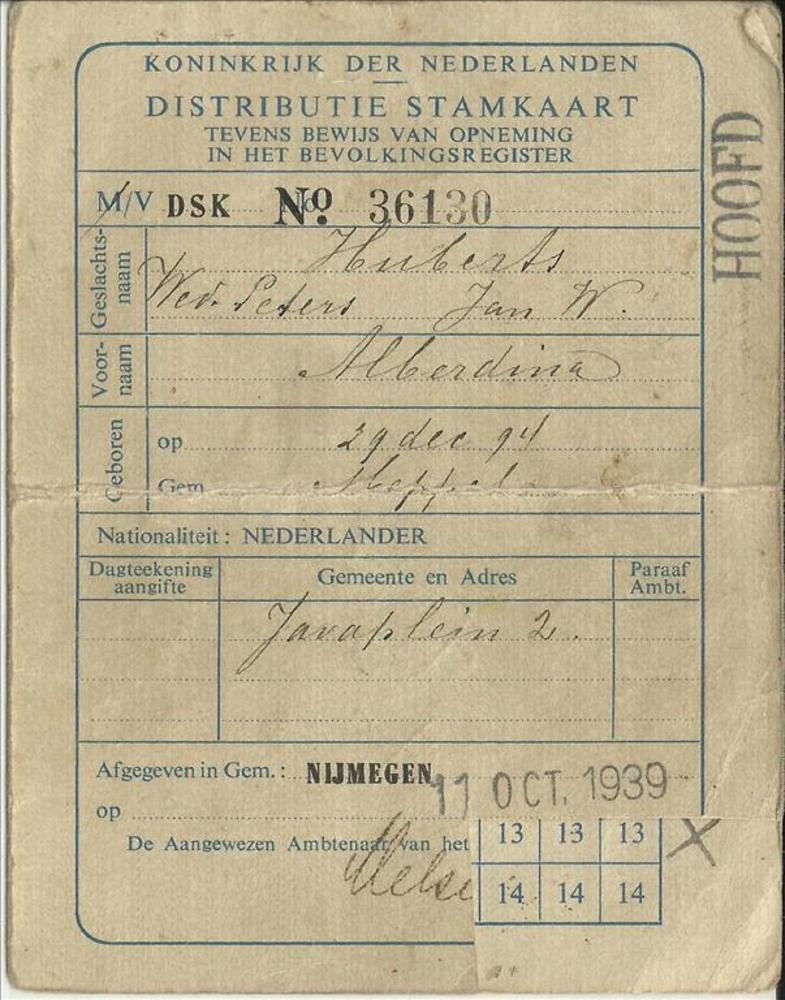 KONINKRIJK DER NEDERLANDEN
DISTRIBUTIE STAMKAART
TEVENS BEWIJS VAN OPNEMING
IN HET BEVOLKINGSREGISTER
HOOFD
M/V DSK No. 36130
Geslachts-
naam
Huberts
Wed. Peters Jan W.
Voor-
naam
Alberdina
Geboren
op 29 dec 94
Gem Meppel
Nationaliteit: NEDERLANDER
Dagteekening
aangifte
Gemeente en Adres
Paraaf
Ambt.
Javaplein 2.
Afgegeven in Gem.: NIJMEGEN
op 11 OCT. 1939
De Aangewezen Ambtenaar van het
13 13 13 X
14 14 14